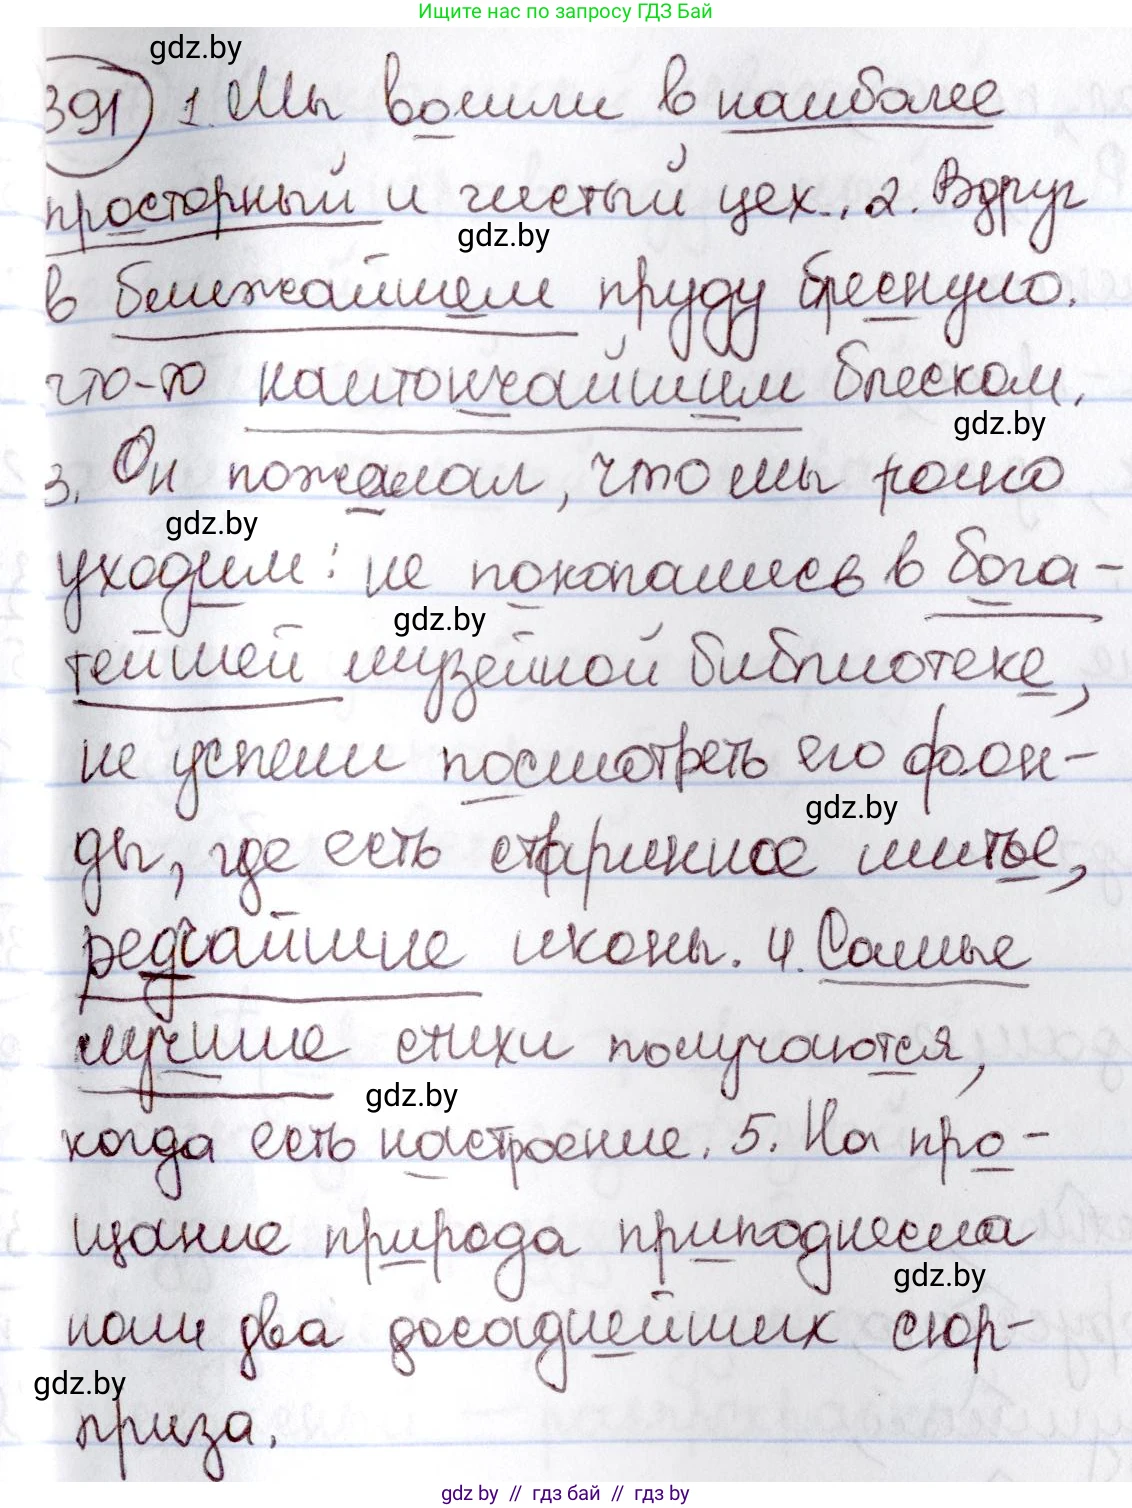 Ищите нас по запросу ГДЗ Бай
gdz.by
391 1. Мы вошли в наиболее
просторный и чистый цех. 2. Вдруг
gdz.by
в ближайшем пруду блеснуло
что-то наитончайшим блеском.
gdz.by
3. Он пожалел, что мы рано
gdz.by
уходим: не покопались в бога-
gdz.by
тейшей музейной библиотеке,
не успели посмотреть его фон-
gdz.by
ды, где есть старинное шитье,
редчайшие иконы. 4. Самые
лучшие стихи получаются,
gdz.by
когда есть настроение. 5. На про-
щание природа приподнесла
gdz.by
нам два досаднейших сюр-
gdz.by
приза.
gdz.by // гдз бай // gdz by